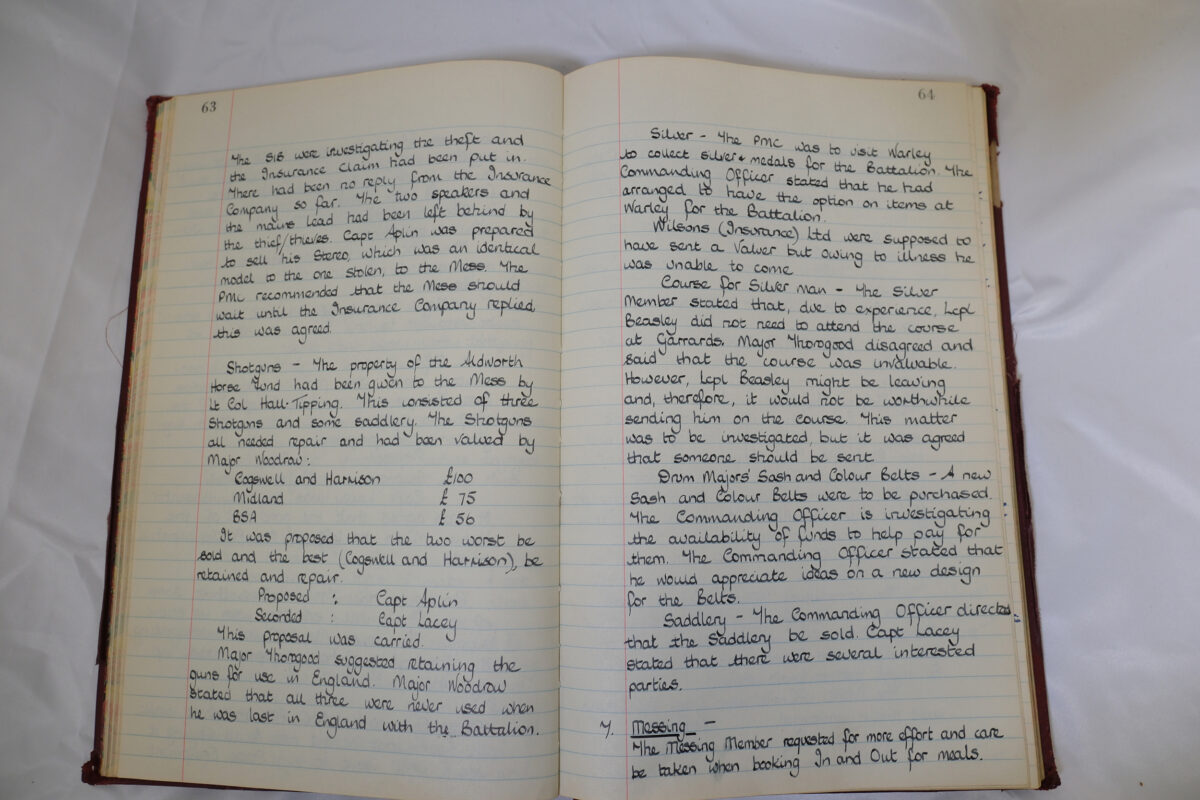 63
The SIB were investigating the theft and
the Insurance Claim had been put in.
There had been no reply from the Insurance
Company so far. The two speakers and
the mains lead had been left behind by
the thief/thieves. Capt Aplin was prepared
to sell his Stereo, which was an identical
model to the one stolen, to the Mess. The
PMC recommended that the Mess should
wait until the Insurance Company replied,
this was agreed.
Shotguns - The property of the Aldworth
Horse Fund had been given to the Mess by
Lt Col Hall-Tipping. This consisted of three
Shotguns and some saddlery. The Shotguns
all needed repair and had been valued by
Major Woodrow:
Cogswell and Harrison £100
Midland £ 75
BSA £ 50
It was proposed that the two worst be
sold and the best (Cogswell and Harrison), be
retained and repair.
Proposed : Capt Aplin
Seconded : Capt Lacey
This proposal was carried.
Major Thorogood suggested retaining the
guns for use in England. Major Woodrow
stated that all three were never used when
he was last in England with the Battalion.
64
Silver - The PMC was to visit Warley
to collect silver & medals for the Battalion. The
Commanding Officer stated that he had
arranged to have the option on items at
Warley for the Battalion.
Wilsons (Insurance) Ltd were supposed to
have sent a Valuer but owing to illness he
was unable to come
Course for Silver Man - The Silver
Member stated that, due to experience, Lcpl
Beasley did not need to attend the course
at Garrards. Major Thorogood disagreed and
said that the course was invaluable.
However, Lcpl Beasley might be leaving
and, therefore, it would not be worthwhile
sending him on the course. This matter
was to be investigated, but it was agreed
that someone should be sent.
Drum Majors' Sash and Colour Belts - A new
Sash and Colour Belts were to be purchased.
The Commanding Officer is investigating
the availability of funds to help pay for
them. The Commanding Officer stated that
he would appreciate ideas on a new design
for the Belts.
Saddlery - The Commanding Officer directed
that the Saddlery be sold. Capt Lacey
stated that there were several interested
parties.
7. Messing -
The Messing Member requested for more effort and care
be taken when booking In and Out for meals.